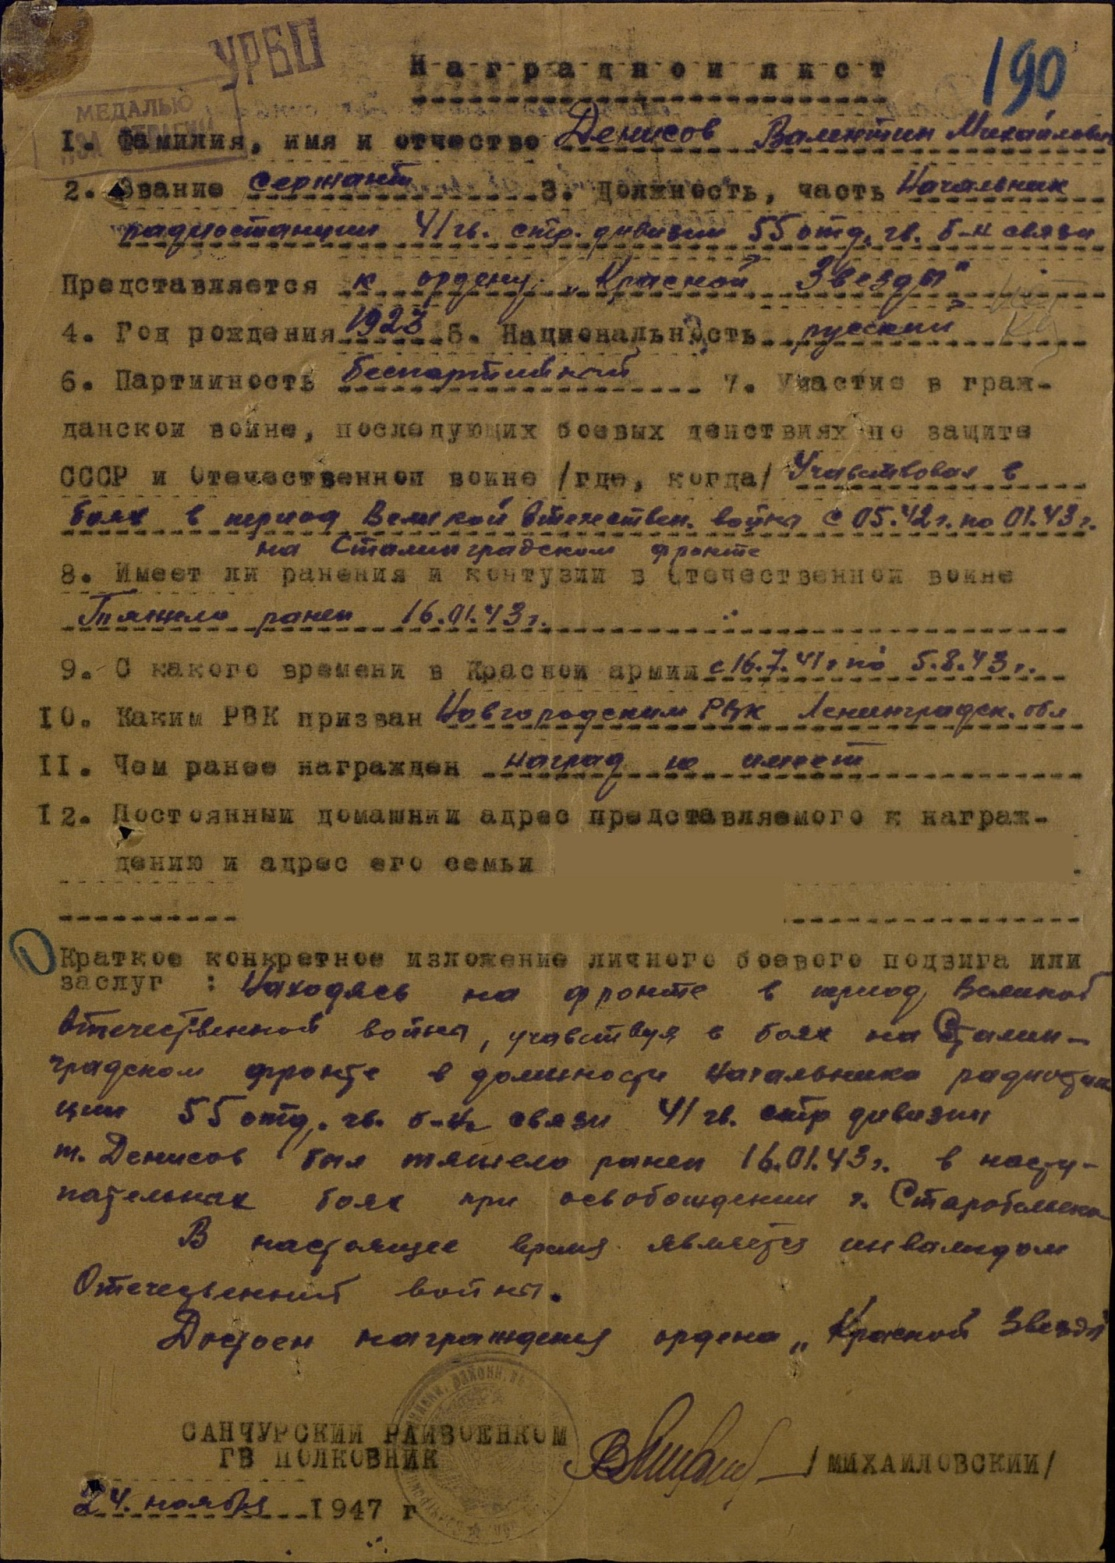 УРБО
190
Наградной лист
МЕДАЛЬЮ
1. Фамилия, имя и отчество Денисов Валентин Михайлович
2. Звание сержант 3. Должность, часть Начальник
радиостанции 41 гв. стр. дивизии 55 отд. гв. б-н связи
Представляется к ордену „Красной Звезды"
4. Год рождения 1923 5. Национальность русский
6. Партийность беспартийный 7. Участие в граж-
данской войне, последующих боевых действиях по защите
СССР и Отечественной войне /где, когда/ Учавствовал в
боях в период Великой Отечествен. войны с 05.42 г. по 01.43 г.
на Сталинградском фронте
8. Имеет ли ранения и контузии в Отечественной войне
Тяжело ранен 16.01.43 г.
9. С какого времени в Красной армии с 16.7.41 г по 5.8.43 г.
10. Каким РВК призван Новгородским РВК Ленинградск. обл
11. Чем ранее награжден наград не имеет
12. Постоянный домашний адрес представляемого к награж-
дению и адрес его семьи
Краткое конкретное изложение личного боевого подвига или
заслуг : Находясь на фронте в период Великой
Отечественной войны, учавствуя в боях на Сталин-
градском фронте в должности начальника радиостан
ции 55 отд. гв. б-на связи 41 гв. стр дивизии
т. Денисов был тяжело ранен 16.01.43 г. в насту-
пательных боях при освобождении г. Старобельска
В настоящее время является инвалидом
Отечественной войны.
Достоен награждения ордена „Красной Звезды"
САНЧУРСКИЙ РАЙВОЕНКОМ
ГВ ПОЛКОВНИК /МИХАЙЛОВСКИЙ/
24. ноября 1947 г